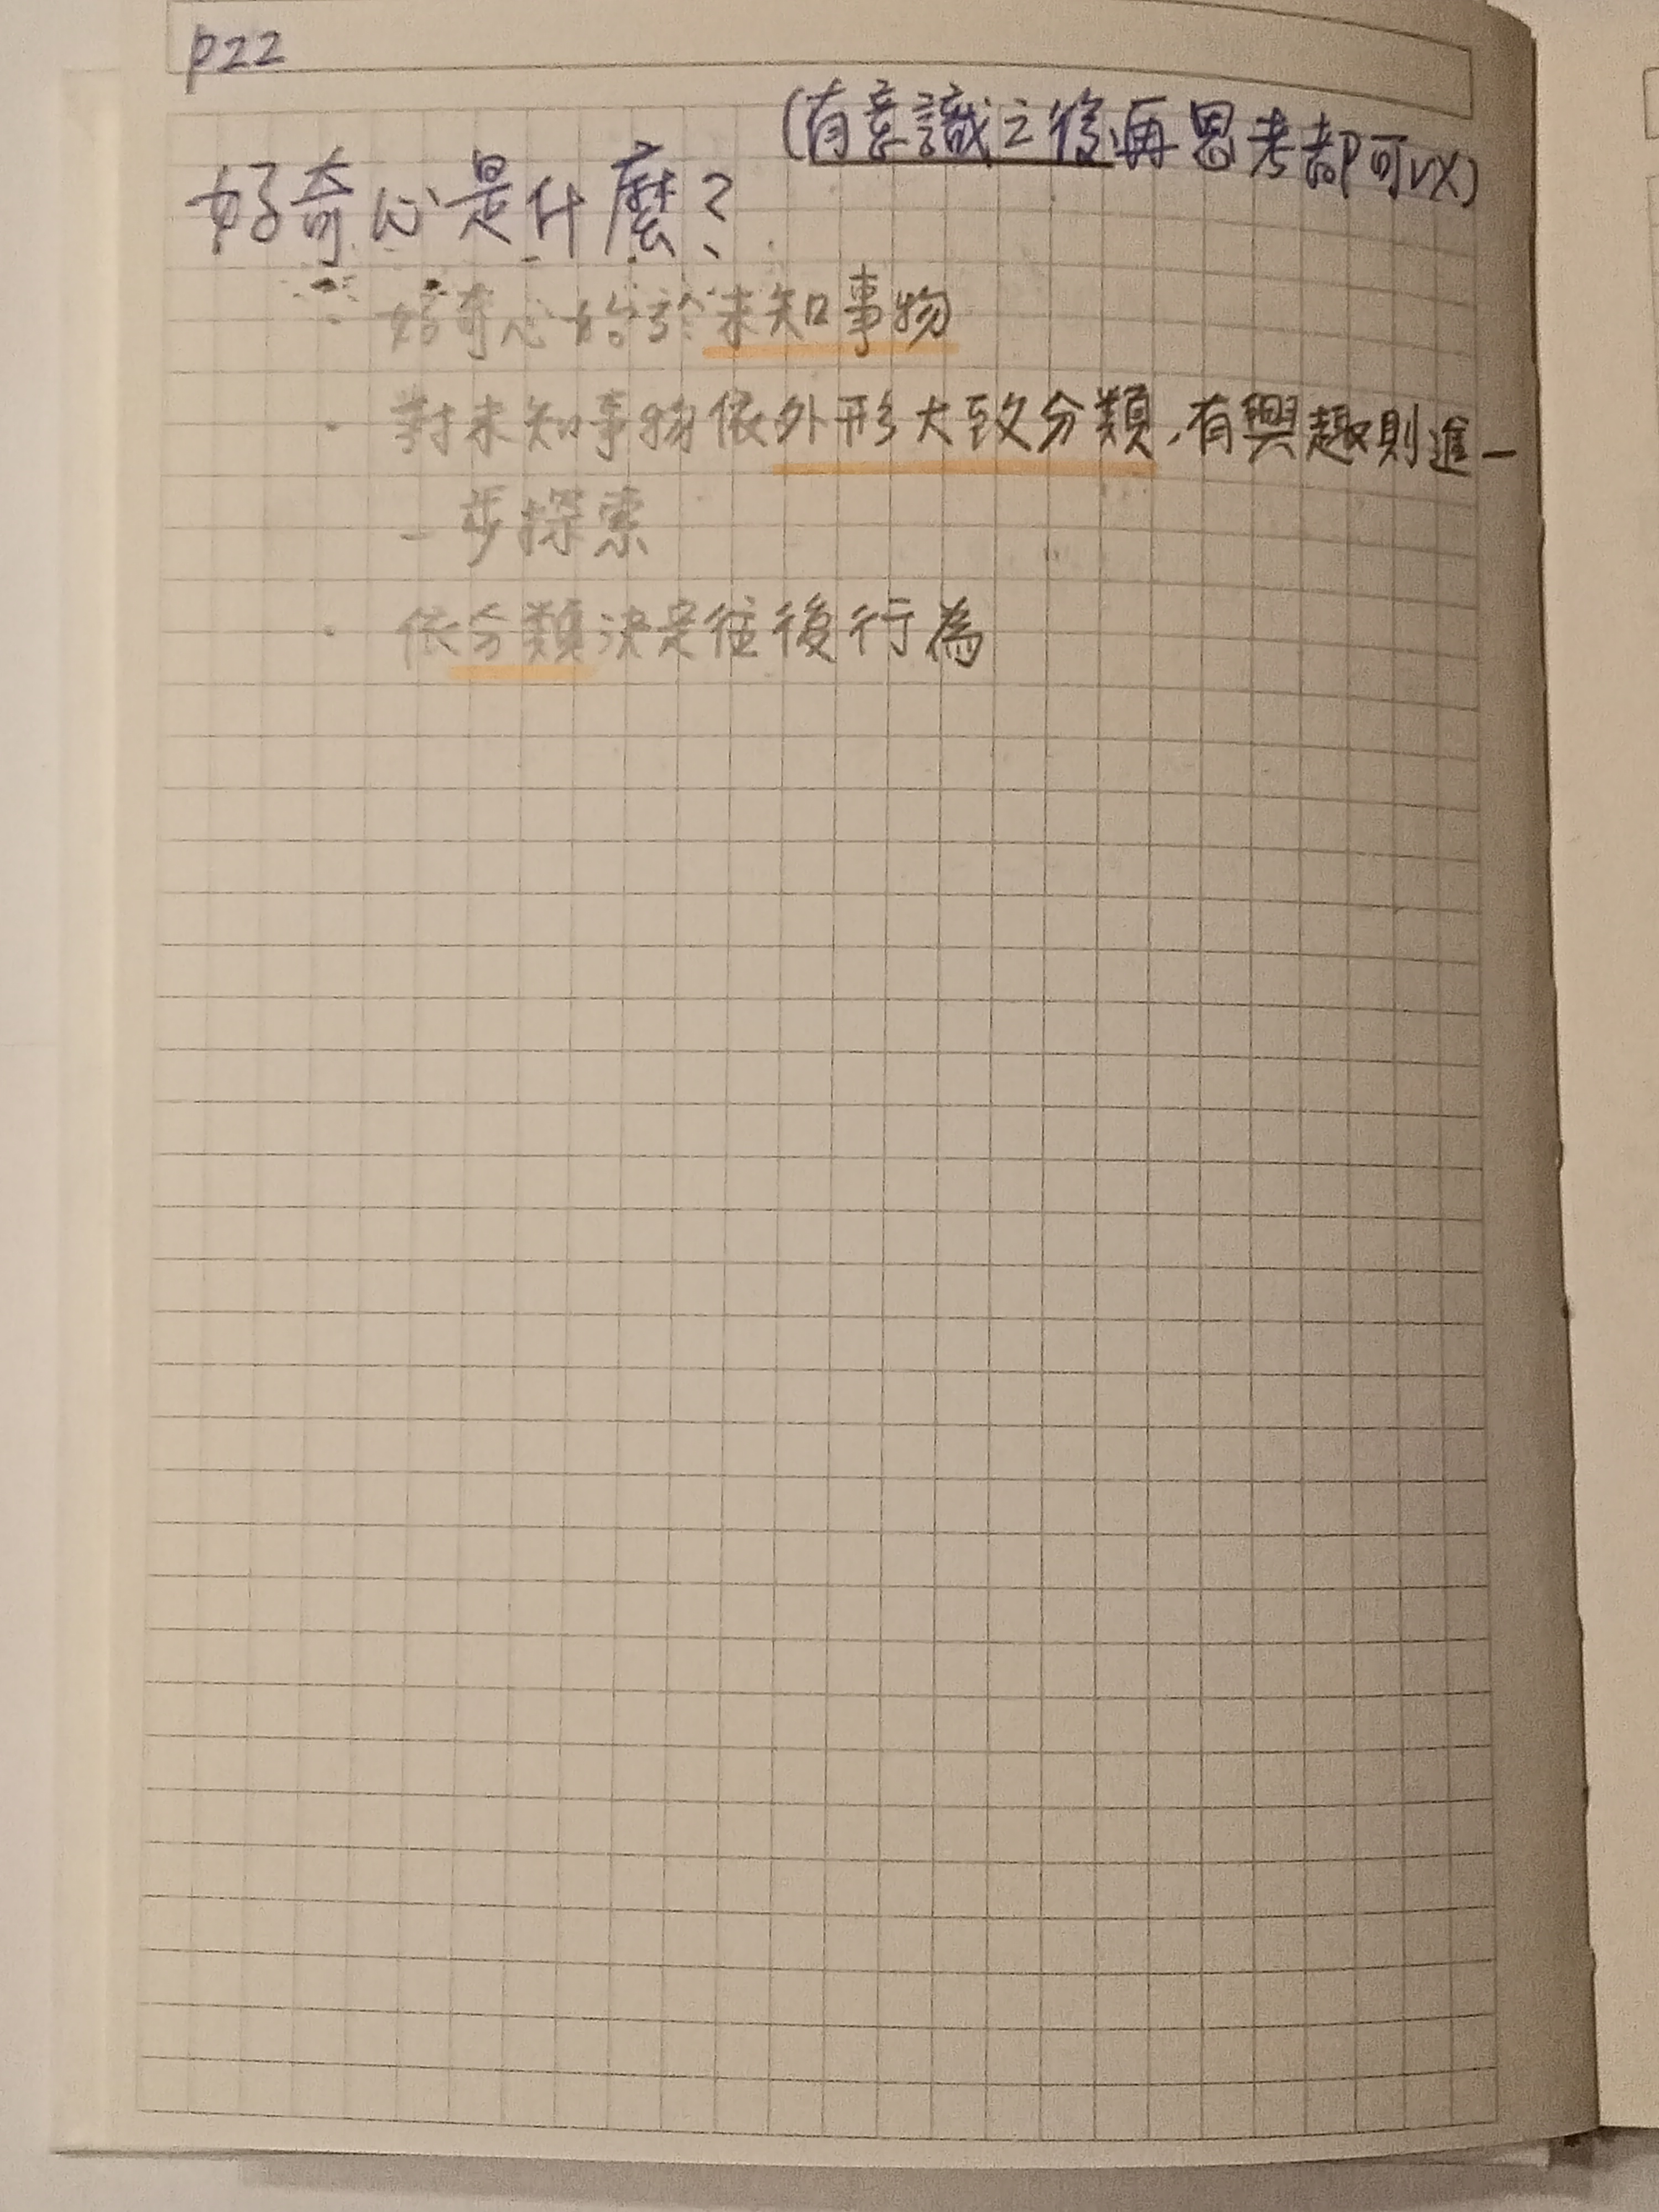 P22
(有意識之後再思考都可以)
好奇心是什麼?
· 好奇心始於未知事物
· 對未知事物依外形大致分類,有興趣則進一
一步探索
· 依分類決定往後行為